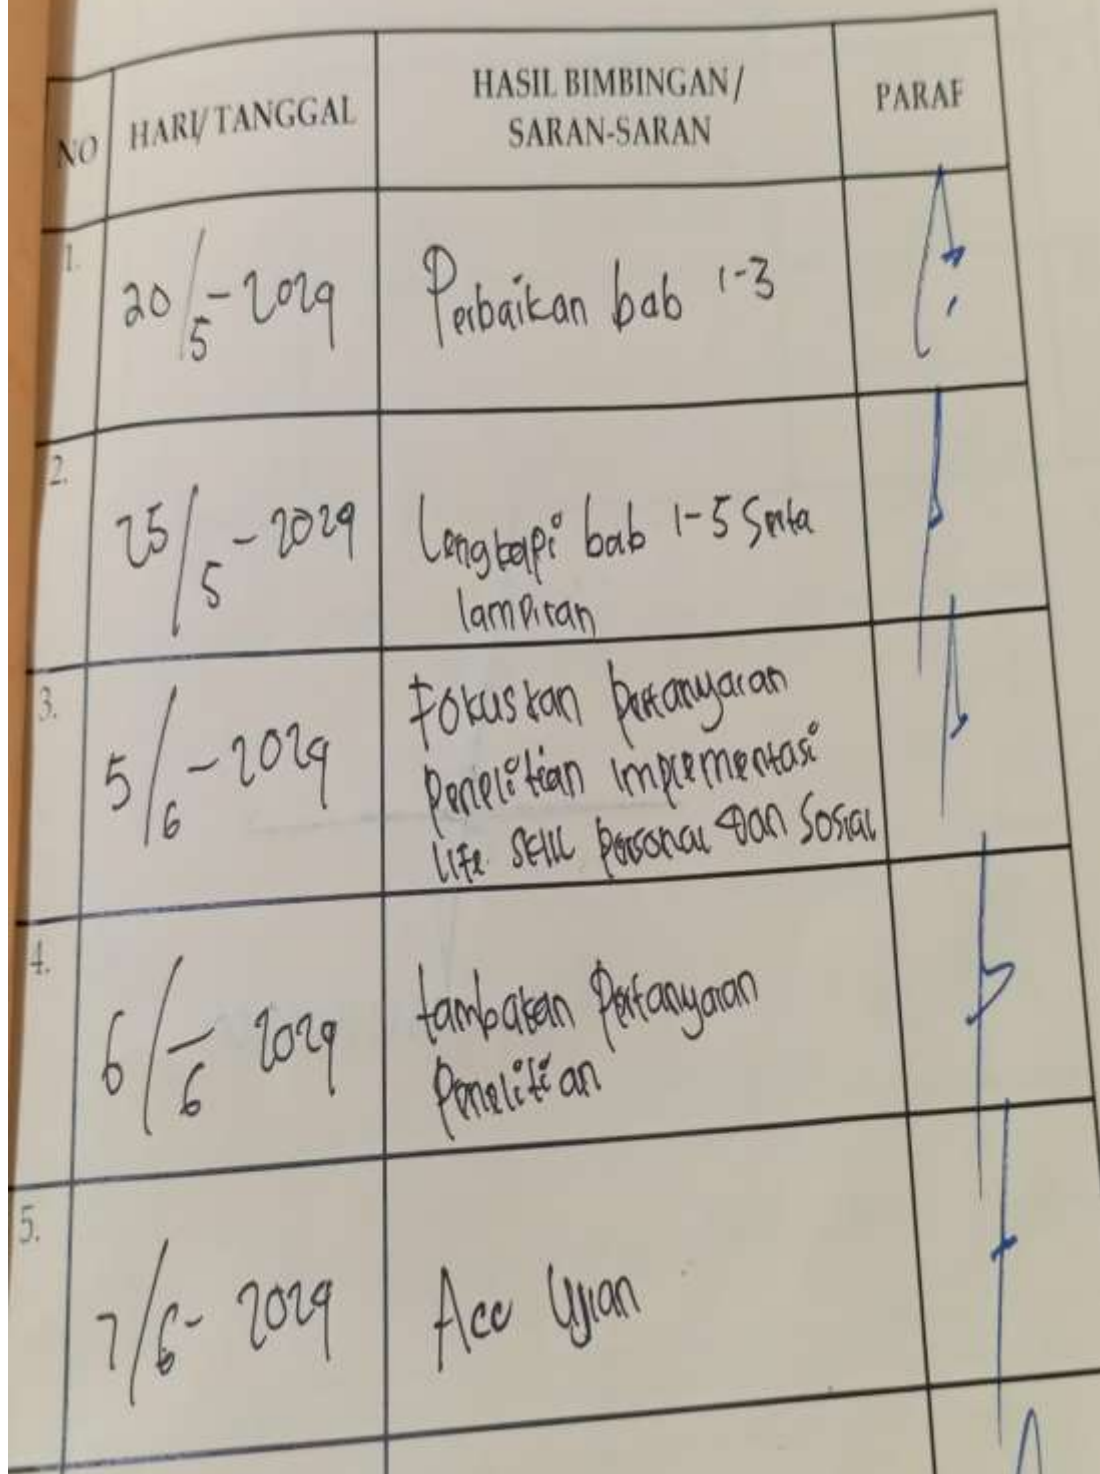 NO
HARI/TANGGAL
HASIL BIMBINGAN/
SARAN-SARAN
PARAF
1.
20/5-2024
Perbaikan bab 1-3
2.
25/5-2024
Lengkapi bab 1-5 Serta
lampiran
3.
5/6-2024
Fokuskan pertanyaan
penelitian implementasi
life skill personal dan Sosial
4.
6/6-2024
tambakan Pertanyaan
Penelitian
5.
7/6-2024
Acc Ujian